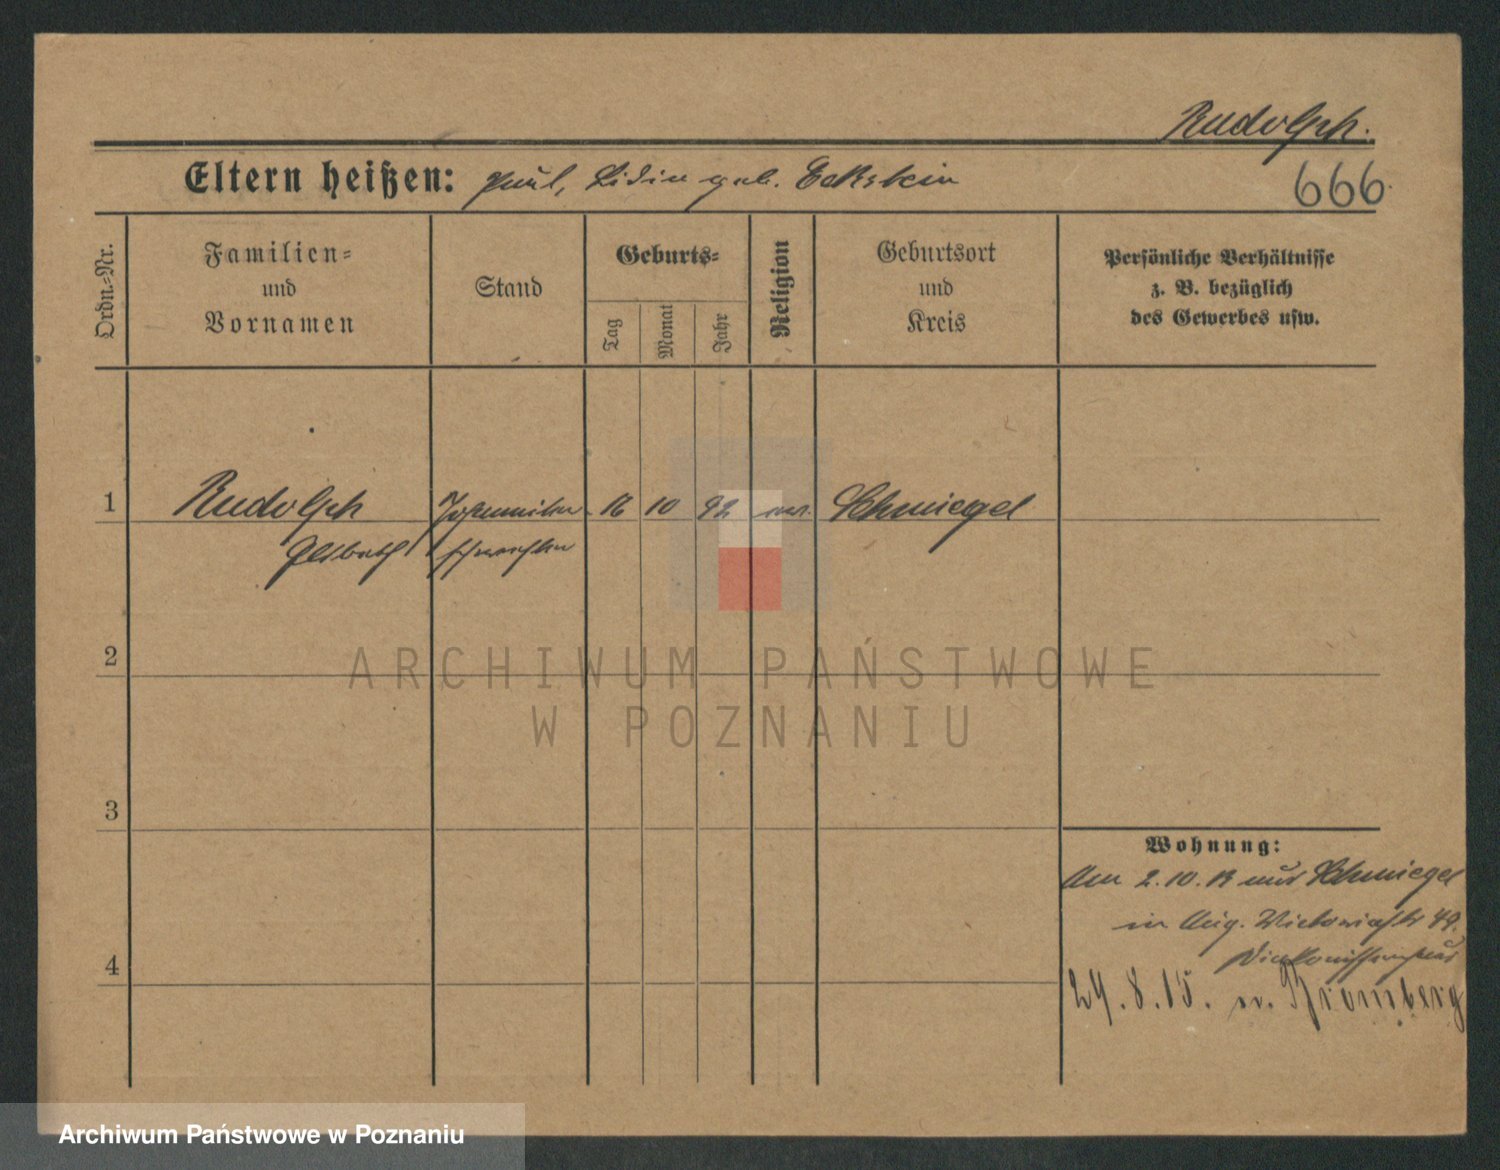 Rudolph.
Eltern heißen: Paul, Lidia geb. Eckstein
666
Ordn.-Nr.
Familien-
und
Vornamen
Stand
Geburts-
Tag
Monat
Jahr
Religion
Geburtsort
und
Kreis
Persönliche Verhältnisse
z. B. bezüglich
des Gewerbes usw.
1
Rudolph
16 10 92 Schmiegel
schwester
2
ARCHIWUM PAŃSTWOWE
W POZNANIU
3
Wohnung:
Am 2.10.13 aus Schmiegel
in Aug. Victoriastr 49.
Diakonissenhaus
4
24.8.15. n. Bromberg
Archiwum Państwowe w Poznaniu